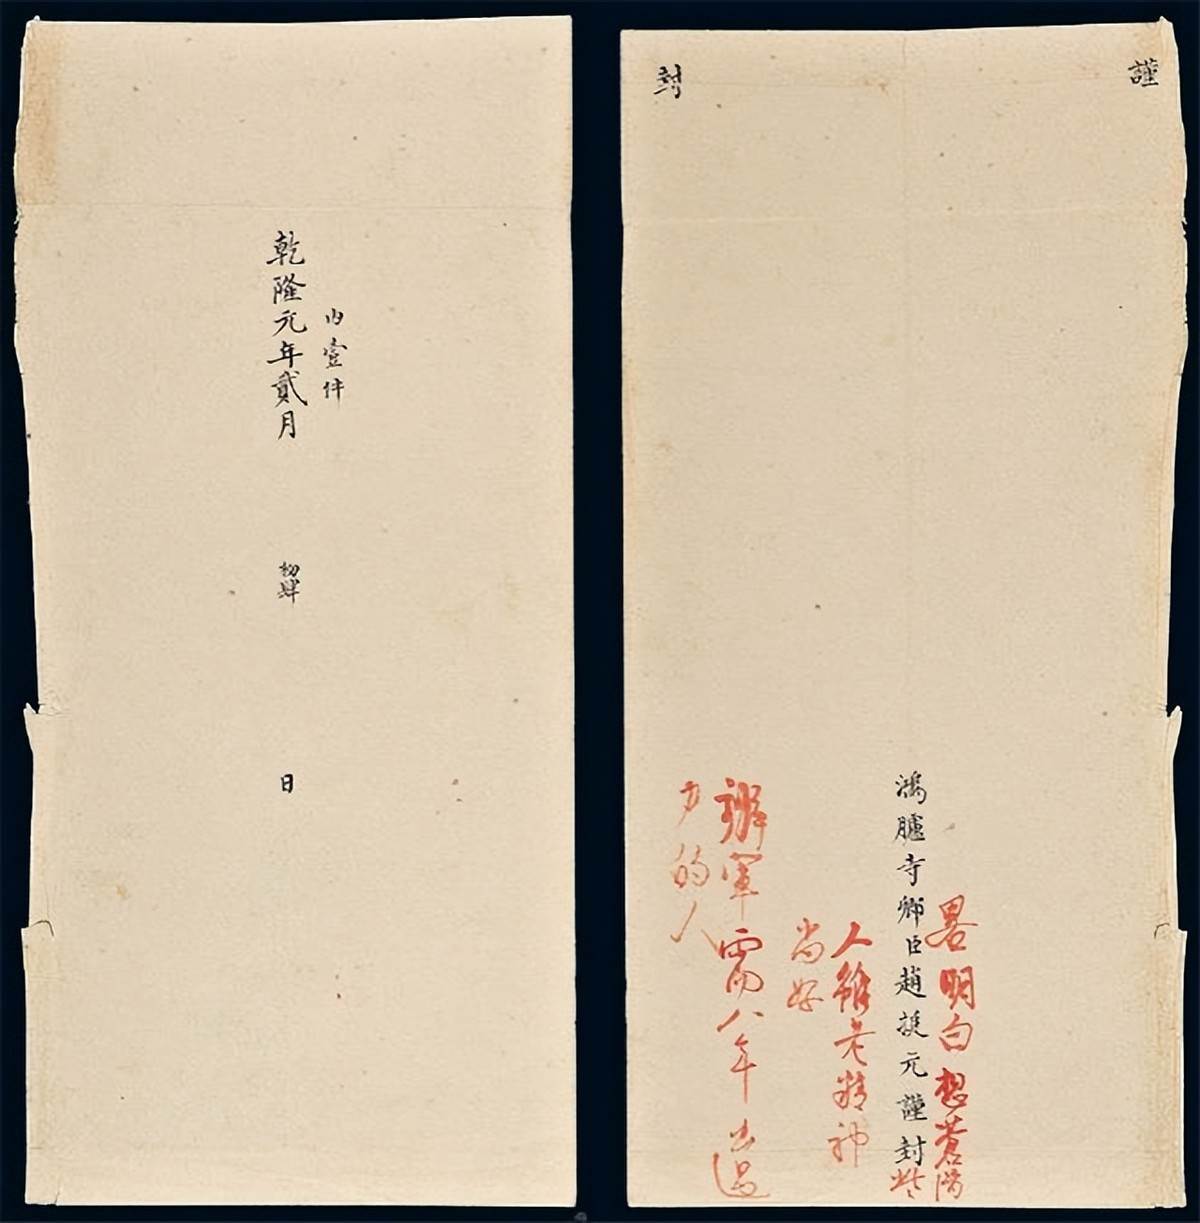 謹
封
畧明白想
鴻臚寺卿臣趙挺元謹封
些
人雖老精神
尚好
辦軍需八年出過
力的人
內壹件
乾隆元年貳月初肆日